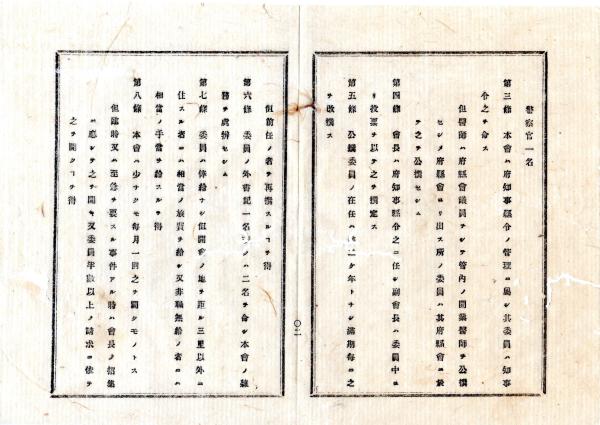 警察官一名
第三條 本會ハ府知事縣令ノ管理ニ屬シ其委員ハ知事
令之ヲ命ス
但醫師ハ府縣會議員ヲシテ管內ノ開業醫師ヲ公撰
セシメ府縣會ヨリ出ス所ノ委員ハ其府縣會ニ於
テ之ヲ公撰セシム
第四條 會長ハ府知事縣令之ニ任シ副會長ハ委員中ヨ
リ投票ヲ以テ之ヲ撰定ス
第五條 公撰委員ノ在任ハ滿二ケ年トナシ滿期每ニ之
ヲ改撰ス
但前任ノ者ヲ再撰スルコヲ得
第六條 委員ノ外書記一名又ハ二名ヲ命シ本會ノ雜
務ヲ處辨セシム
第七條 委員ハ俸給ナシ但開會ノ地ヲ距ル三里以外ニ
住スル者ニハ相當ノ旅費ヲ給シ又非職無給ノ者ニハ
相當ノ手當ヲ給スルヲ得
第八條 本會ハ少ナクモ每月一回之ヲ開クモノトス
但臨時又ハ至急ヲ要スル事件アル時ハ會長ノ招集
ニ應シテ之ヲ開キ又委員半數以上ノ請求ニ依テ
之ヲ開クコヲ得
〇二